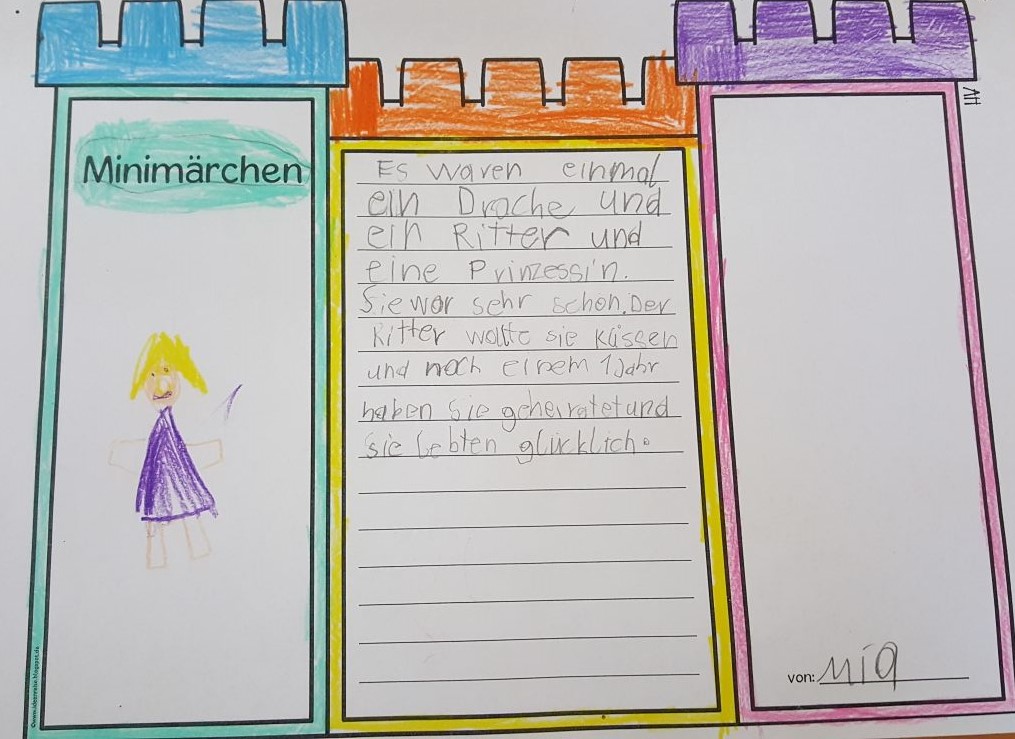 Minimärchen
Es waren einmal
ein Drache und
ein Ritter und
eine Prinzessin.
Sie war sehr schön. Der
Ritter wollte sie küssen
und nach einem 1 Jahr
haben sie geheiratet und
sie lebten glücklich.
von: Mia
AH
©www.ideenreise.blogspot.de